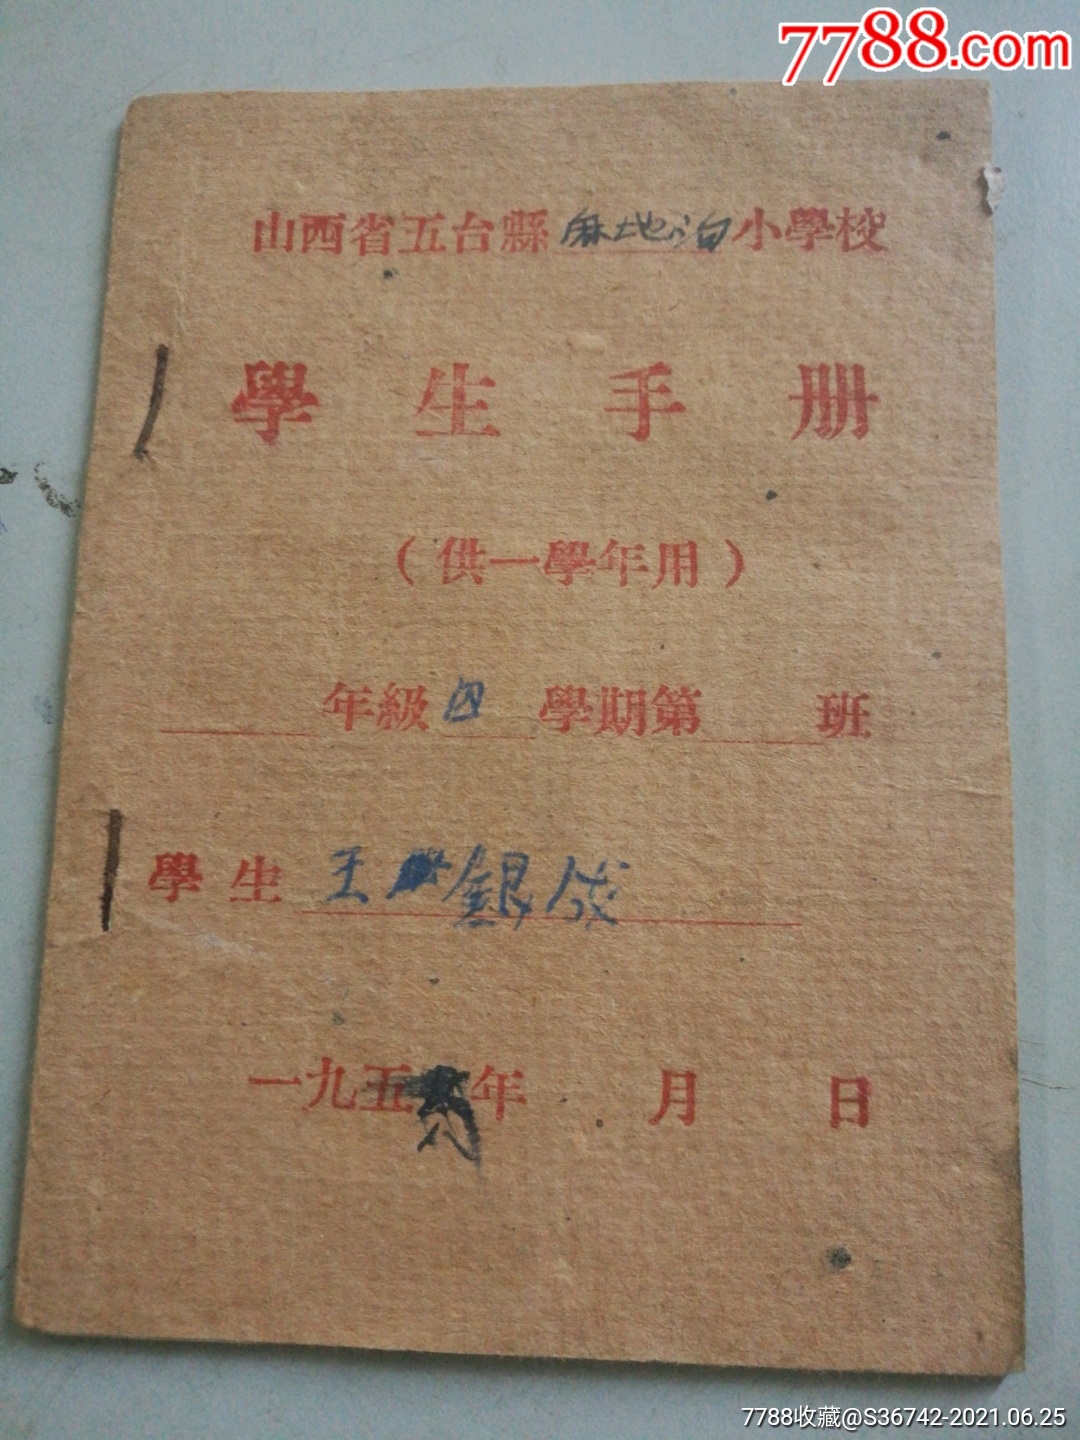 7788.com
山西省五台縣麻地沟小學校
學生手册
(供一學年用)
年級四學期第 班
學生 王銀成
一九五 年 月 日
7788收藏@S36742-2021.06.25